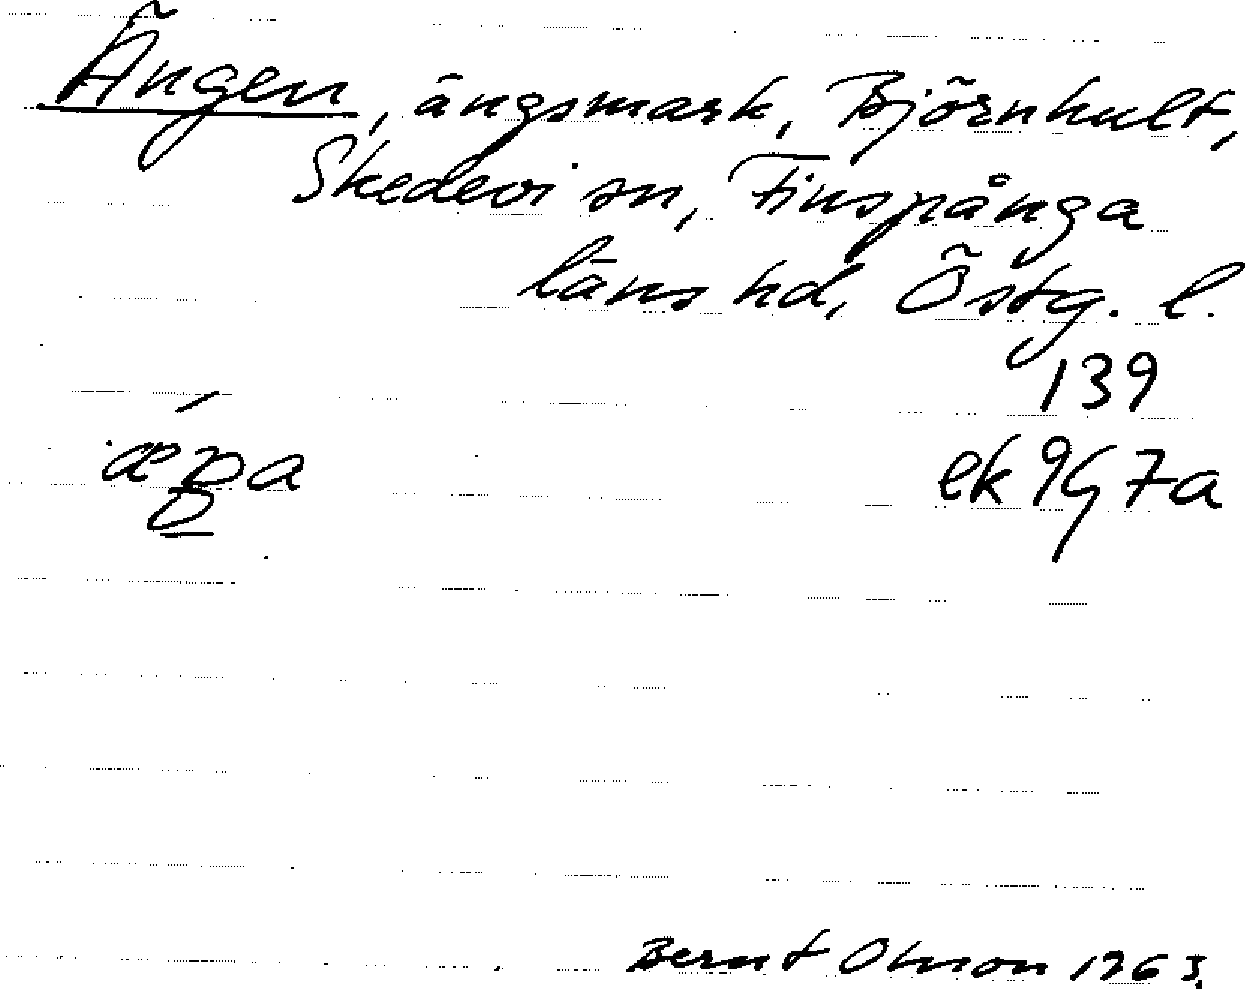 Ängen, ängsmark, Björnhult,
Skedevi sn, Finspånga
läns hd, Östg. l.
139
ek 9G7a
Bernt Olsson 1963